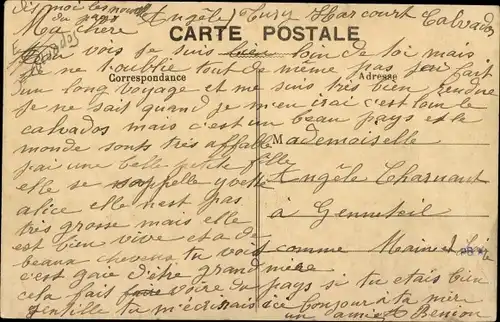 Dis moi les nouvelles
du pays
Angèle) Tury Harcourt Calvados
Ma chère
CARTE POSTALE
Tu vois je suis bien loin de toi mais
je ne t'oublie tout de même pas j'ai fait
Correspondance
Adresse
d'un long voyage et me suis très bien rendue
je ne sais quand je m'en irai c'est loin le
calvados mais c'est un beau pays et le
monde sont très affable
Mademoiselle
j'ai une belle petite fille
elle se rappelle yvette
Angèle Charnant
alice elle n'est pas
à Genneteil
très grosse mais elle
est bien vive et a de
beaux cheveux tu vois comme Maine et Loire
c'est gaie d'être grand mère
cela fait faire voire du pays si tu étais bien
gentille tu m'écrirais ici bonjour à ta mère
une amie A Benion